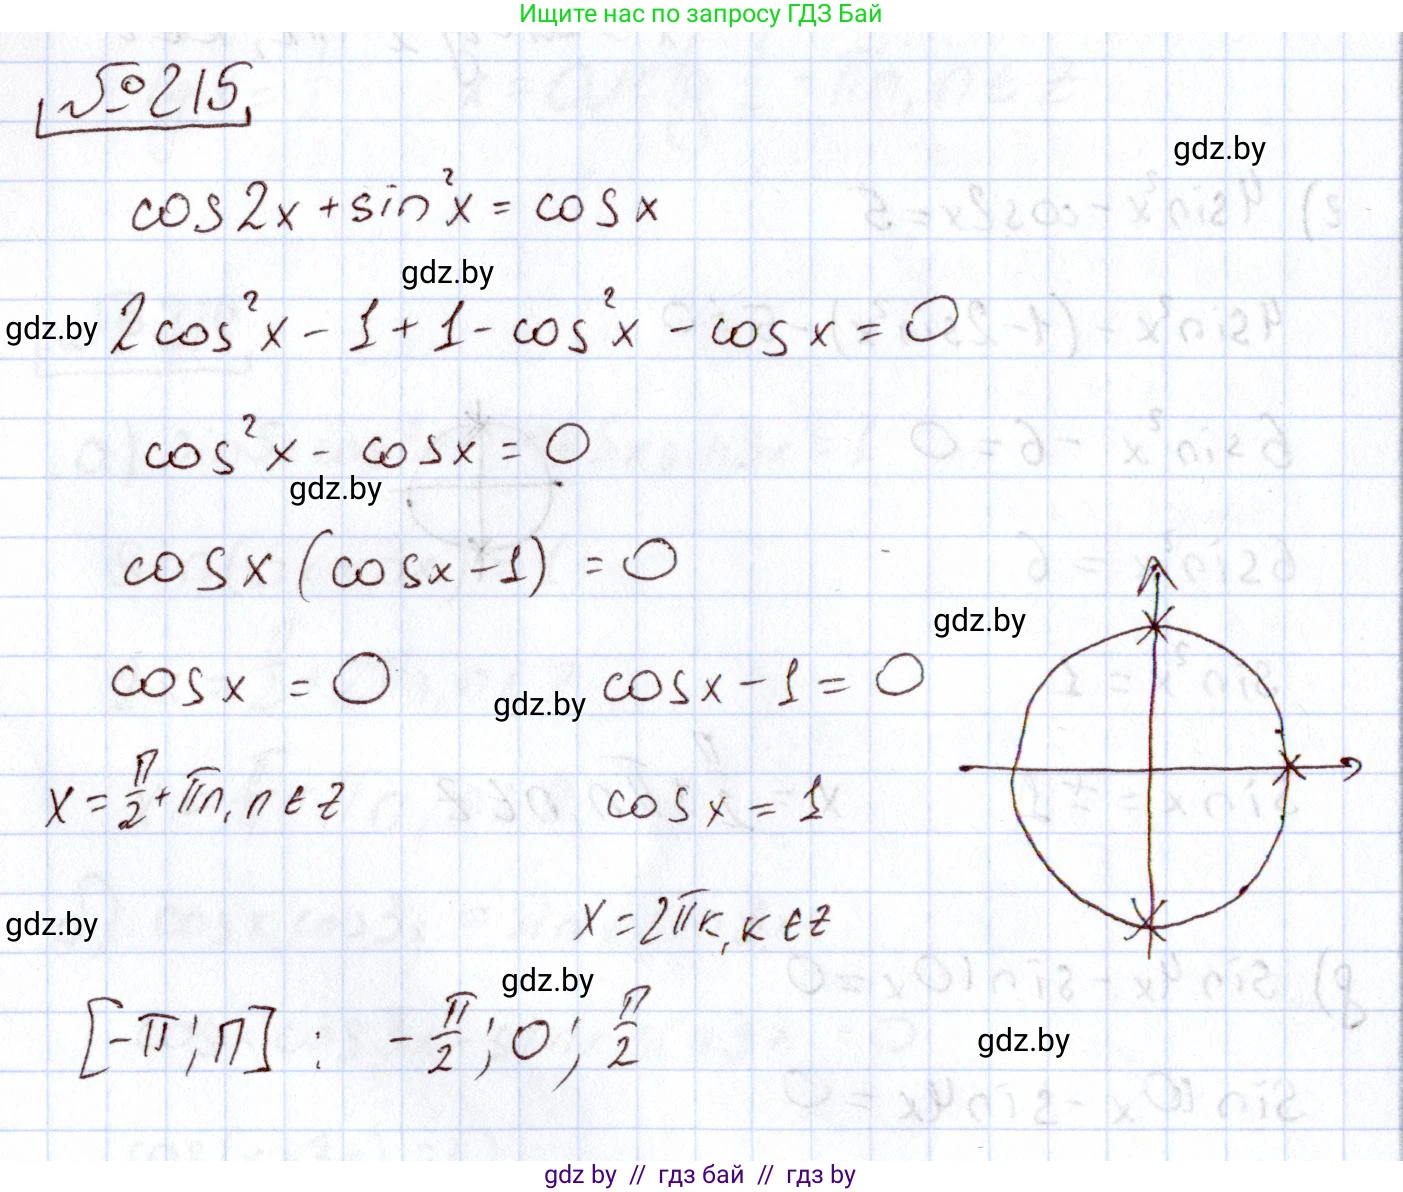 Ищите нас по запросу ГДЗ Бай
№215
gdz.by
cos2x + sin²x = cosx
gdz.by
gdz.by
2cos²x - 1 + 1 - cos²x - cosx = 0
cos²x - cosx = 0
gdz.by
cosx (cosx - 1) = 0
gdz.by
cosx = 0 cosx - 1 = 0
gdz.by
x = π/2 + πn, n ∈ z cosx = 1
x = 2πk, k ∈ z
gdz.by
gdz.by
[-π; π] : -π/2; 0; π/2
gdz.by
gdz by // гдз бай // гдз by